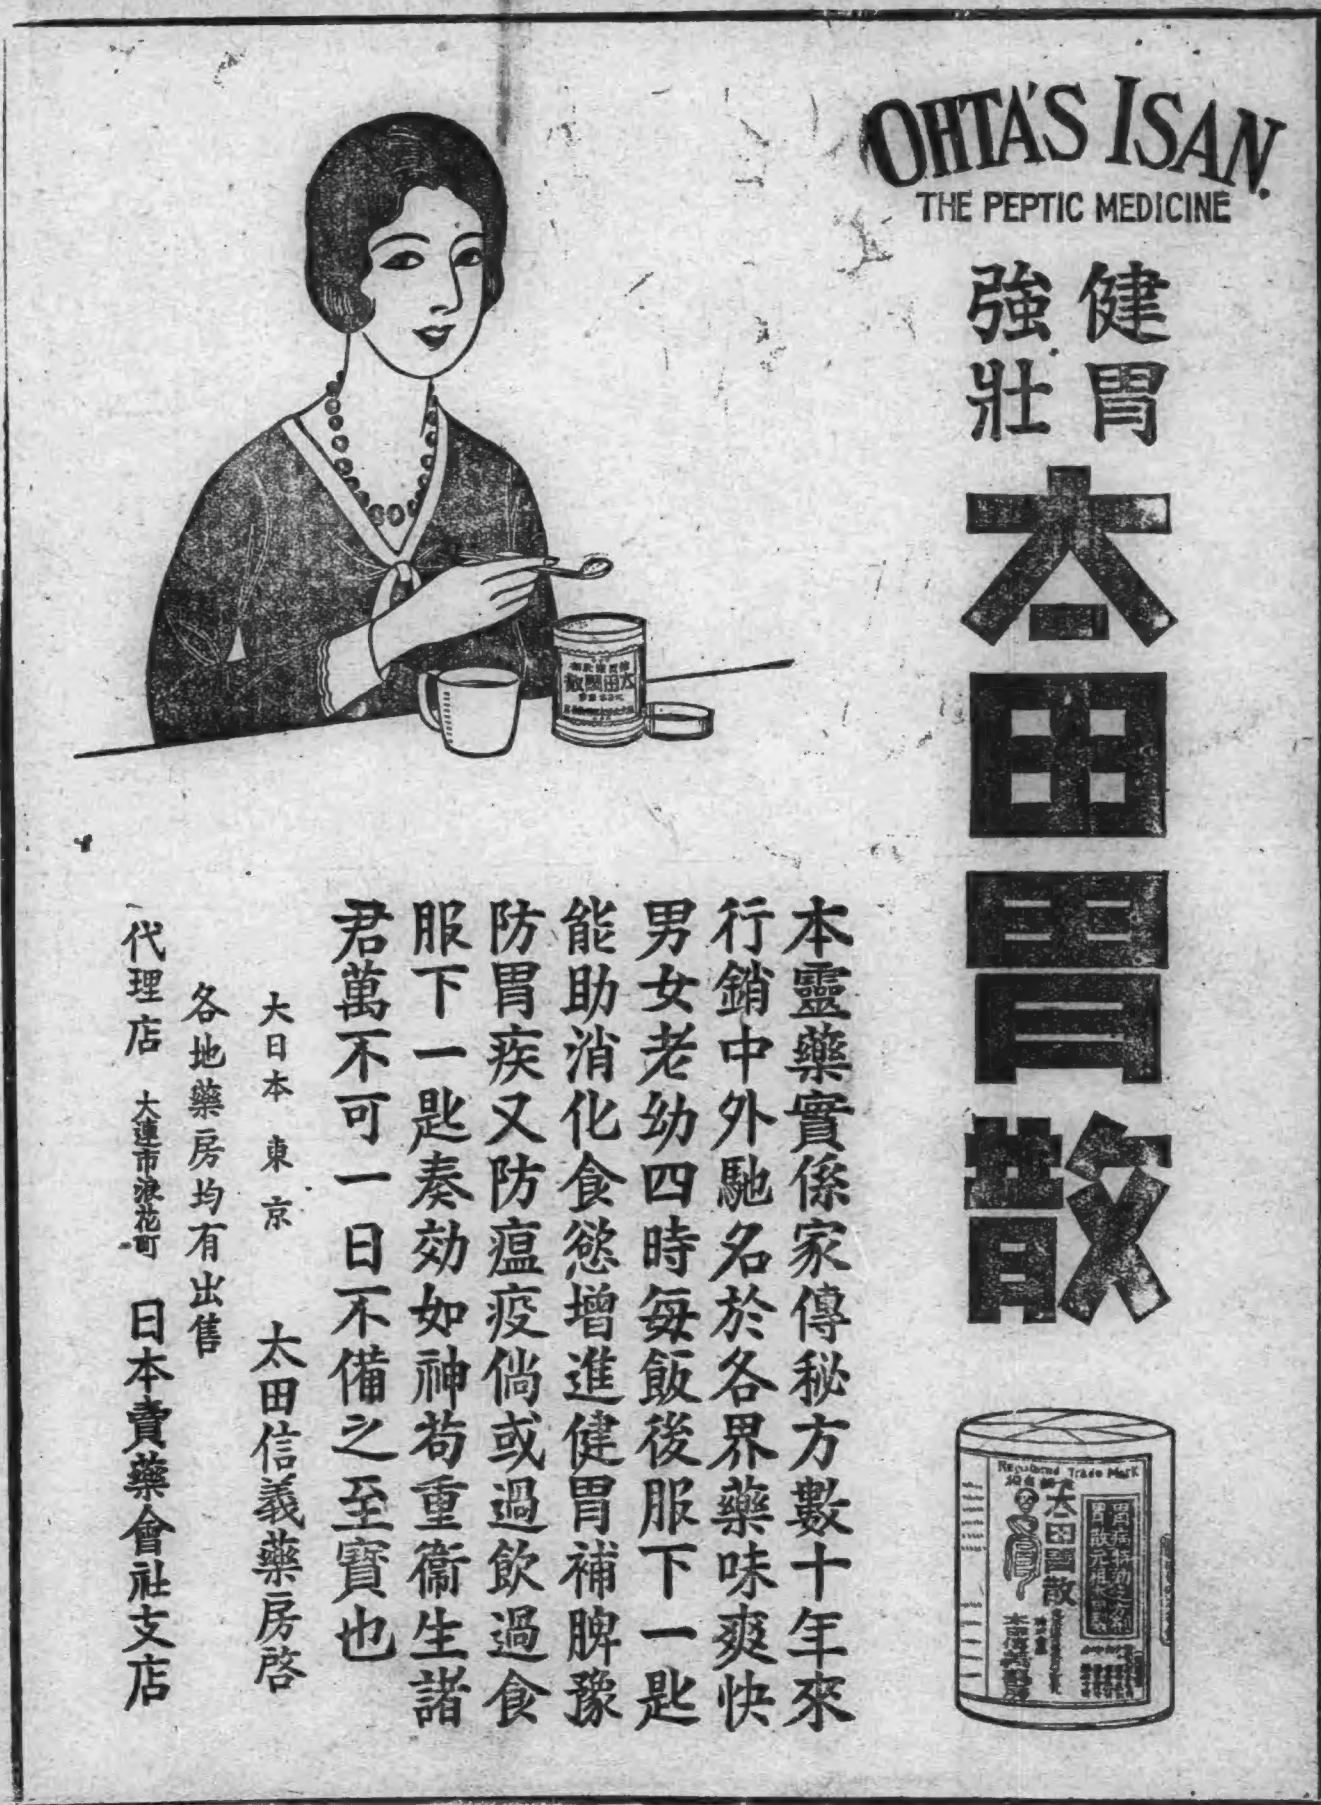 OHTA'S ISAN.
THE PEPTIC MEDICINE
健胃
強壯
太田胃散
Registered Trade Mark
太田胃散
本靈藥實係家傳秘方數十年來
行銷中外馳名於各界藥味爽快
男女老幼四時每飯後服下一匙
能助消化食慾增進健胃補脾豫
防胃疾又防瘟疫倘或過飲過食
服下一匙奏効如神苟重衞生諸
君萬不可一日不備之至寶也
大日本東京 太田信義藥房啓
各地藥房均有出售
代理店 大連市浪花町 日本賣藥會社支店